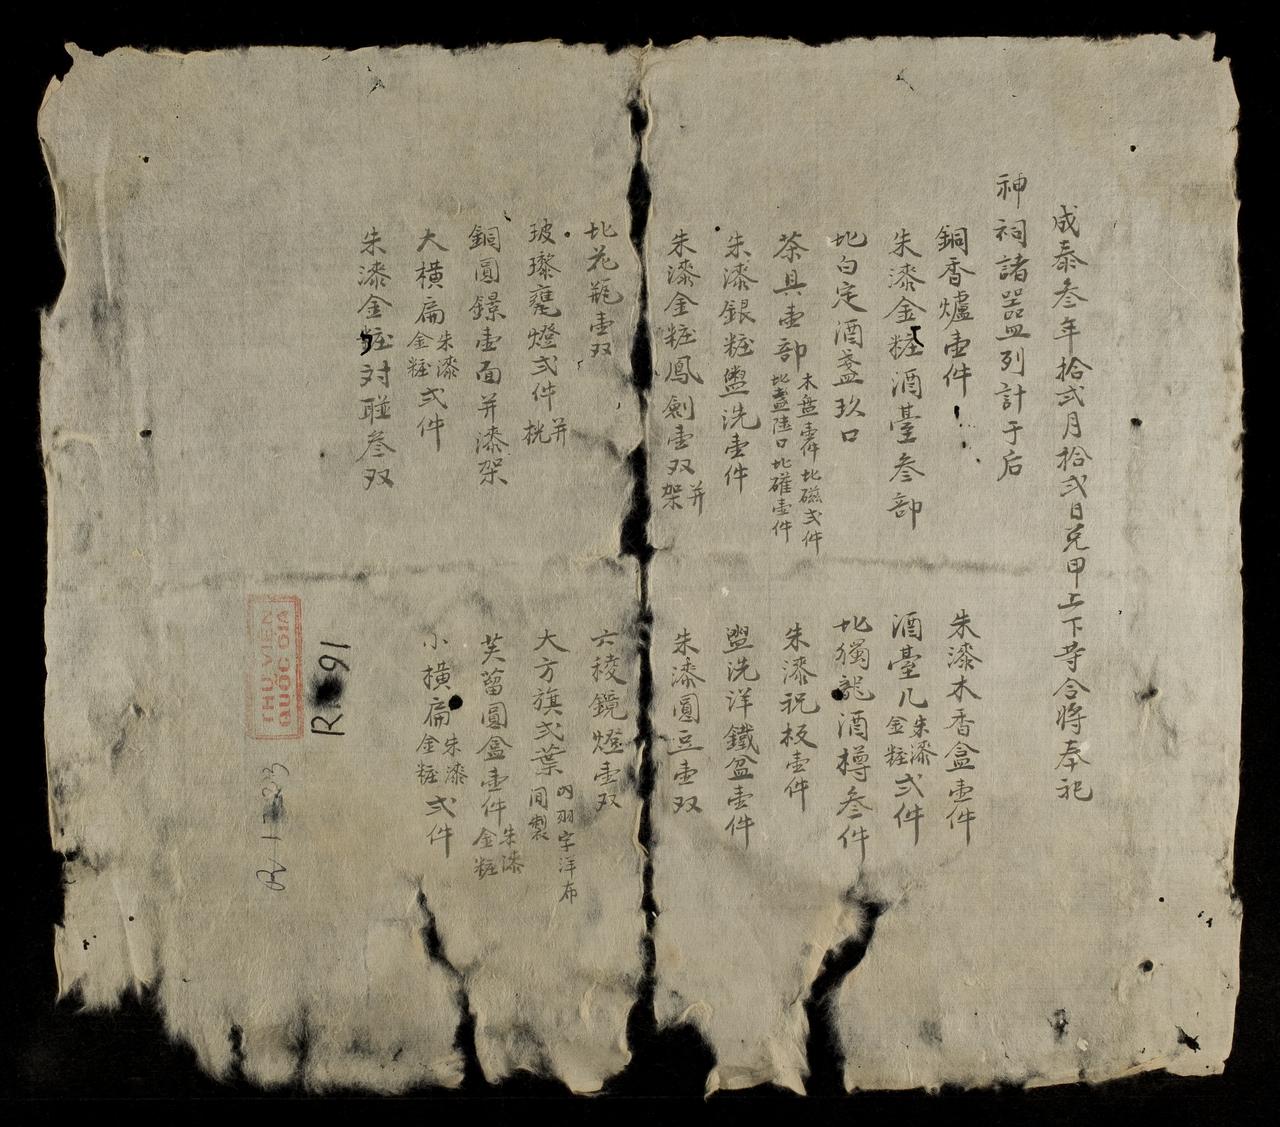 成泰叁年拾弍月拾弍日兑甲上下等仝將奉祀
神祠諸器皿列計于后
銅香爐壹件
朱漆木香盒壹件
朱漆金粧酒臺叁部
酒臺几朱漆金粧弍件
圠白定酒盞玖口
圠獨龍酒樽叁件
茶具壹部木盘壹件圠磁弍件圠盞陸口圠礶壹件
朱漆祝板壹件
朱漆銀粧盥洗壹件
盥洗洋鐵盆壹件
朱漆金粧鳳劍壹双并架
朱漆圓豆壹双
圠花瓶壹双
六稜鏡燈壹双
玻瓈甕燈弍件并桄
大方旗弍葉內羽字洋布間製
銅圓鏡壹面并漆架
芙蒥圓盒壹件朱漆金粧
大横扁朱漆金粧弍件
小横扁朱漆金粧弍件
朱漆金粧対聯叁双
THƯ VIỆN
QUỐC GIA